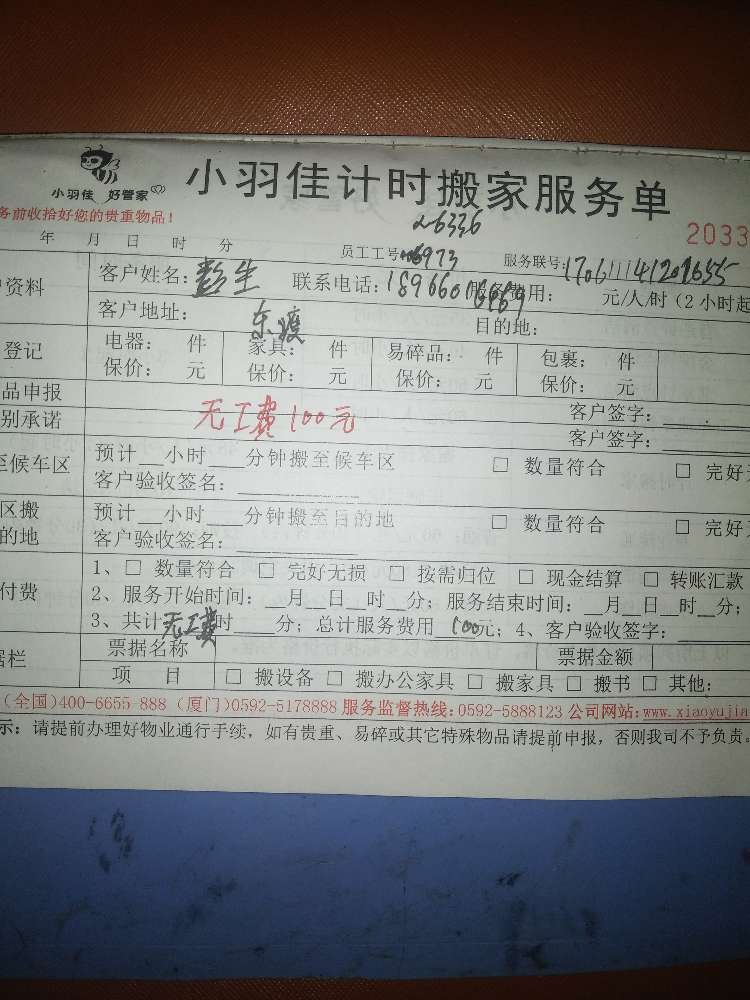 小羽佳 好管家
小羽佳计时搬家服务单
务前收拾好您的贵重物品！
26336
2033
年 月 日 时 分
员工工号: 6973
服务联号: 170611141201655
户资料
客户姓名: 彭生
联系电话: 18966016669
服务费用: 元/人/时（2小时起
客户地址: 东渡
目的地:
登记
电器: 件 家具: 件 易碎品: 件 包裹: 件
保价: 元 保价: 元 保价: 元 保价: 元
品申报
客户签字:
别承诺
无工费100元
客户签字:
至候车区
预计__小时___分钟搬至候车区 □ 数量符合 □ 完好无
客户验收签名:
区搬
的地
预计__小时___分钟搬至目的地 □ 数量符合 □ 完好无
客户验收签名:
付费
1、□ 数量符合 □ 完好无损 □ 按需归位 □ 现金结算 □ 转账汇款
2、服务开始时间: __月__日__时__分; 服务结束时间: __月__日__时__分;
3、共计无工费时 分; 总计服务费用 100元; 4、客户验收签字:
据栏
票据名称 票据金额
项 目 □ 搬设备 □ 搬办公家具 □ 搬家具 □ 搬书 □ 其他:
(全国)400-6655 888 (厦门)0592-5178888 服务监督热线:0592-5888123 公司网站:www.xiaoyujia
示: 请提前办理好物业通行手续，如有贵重、易碎或其它特殊物品请提前申报，否则我司不予负责。